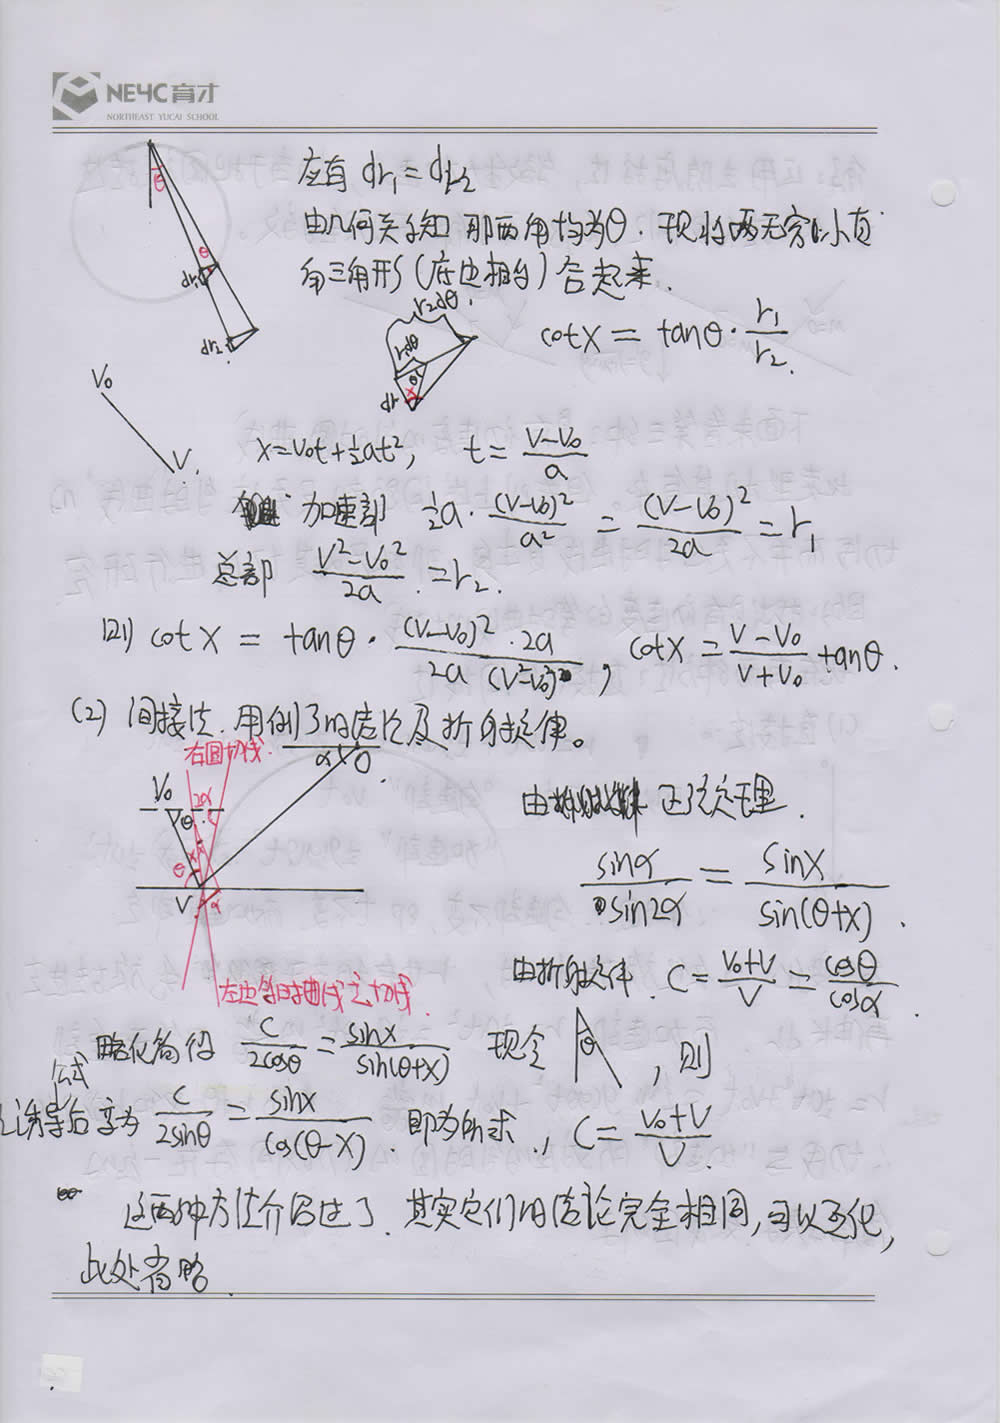 NEYC育才
NORTHEAST YUCAI SCHOOL
θ
θ
dr₁
dr₂
应有 dr₁ = dr₂
由几何关系知 那两角均为θ. 现将两无穷小直
角三角形(底边相台)合起来.
r₂dθ.
r₁dθ
θ
x
dr
cotx = tanθ · r₁/r₂.
V₀
V.
x=V₀t+½at², t = (V-V₀)/a
加速部 ½a · (V-V₀)²/a² = (V-V₀)²/2a = r₁
总部 (V²-V₀²)/2a = r₂.
cotx = tanθ · (V-V₀)²·2a / 2a(V²-V₀²), cotx = (V-V₀)/(V+V₀) tanθ.
(2) 间接法. 用例3的结论及折射定律。
右圆切线.
V₀
2α
θ
θ
x
V
α
由 正弦定理.
sinα/sin2α = sinx/sin(θ+x).
由折射定律. C = (V₀+V)/V = cosθ/cosα.
左边等时曲线之切线
略化简得 C/2cosθ = sinx/sin(θ+x) 现令 θ , 则
公式
诱导后变为 C/2sinθ = sinx/cos(θ-x). 即为所求, C = (V₀+V)/V.
这两种方法介绍过了. 其实它们的结论完全相同, 可以互化,
此处省略.